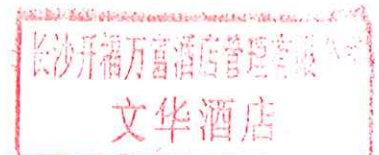 长沙开福万富酒店管理有限
文华酒店